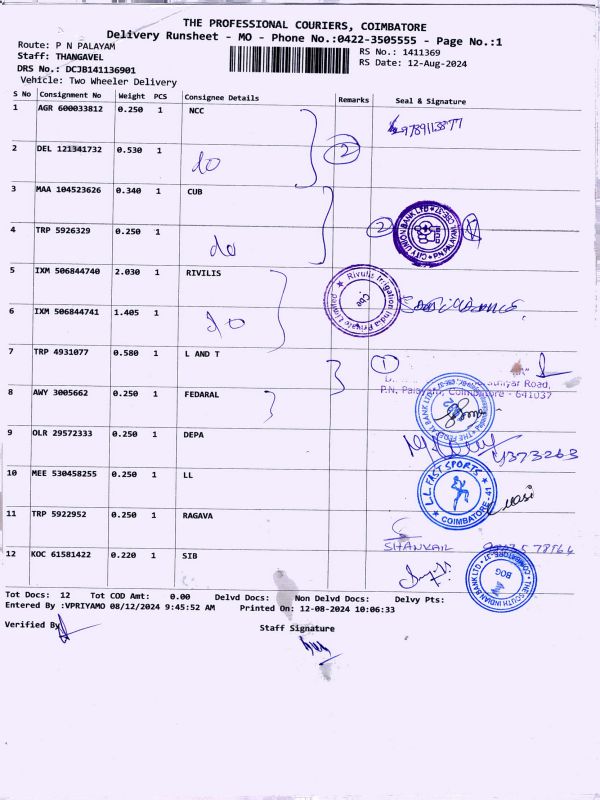 THE PROFESSIONAL COURIERS, COIMBATORE
Delivery Runsheet - MO - Phone No.:0422-3505555 - Page No.:1
Route: P N PALAYAM
RS No.: 1411369
Staff: THANGAVEL
RS Date: 12-Aug-2024
DRS No.: DCJB141136901
Vehicle: Two Wheeler Delivery
S No Consignment No Weight PCS Consignee Details Remarks Seal & Signature
1 AGR 600033812 0.250 1 NCC
9789113877
2 DEL 121341732 0.530 1 do 2
3 MAA 104523626 0.340 1 CUB
4 TRP 5926329 0.250 1 do 2
CITY UNION BANK LTD P.N PALAYAM, CBE-37
5 IXM 506844740 2.030 1 RIVILIS
Rivulis Irrigation India Private Limited
Cbe
6 IXM 506844741 1.405 1 do
7 TRP 4931077 0.580 1 L AND T 1
Road,
P.N. Palayam, Coimbatore - 641037
8 AWY 3005662 0.250 1 FEDARAL
THE FEDERAL BANK LTD
9 OLR 29572333 0.250 1 DEPA
10 MEE 530458255 0.250 1 LL
L.L. FAST SPORTS
COIMBATORE - 41
11 TRP 5922952 0.250 1 RAGAVA
SHANKAR
12 KOC 61581422 0.220 1 SIB
THE SOUTH INDIAN BANK LTD COIMBATORE-37
BOG
Tot Docs: 12 Tot COD Amt: 0.00 Delvd Docs: Non Delvd Docs: Delvy Pts:
Entered By :VPRIYAMO 08/12/2024 9:45:52 AM Printed On: 12-08-2024 10:06:33
Verified By
Staff Signature